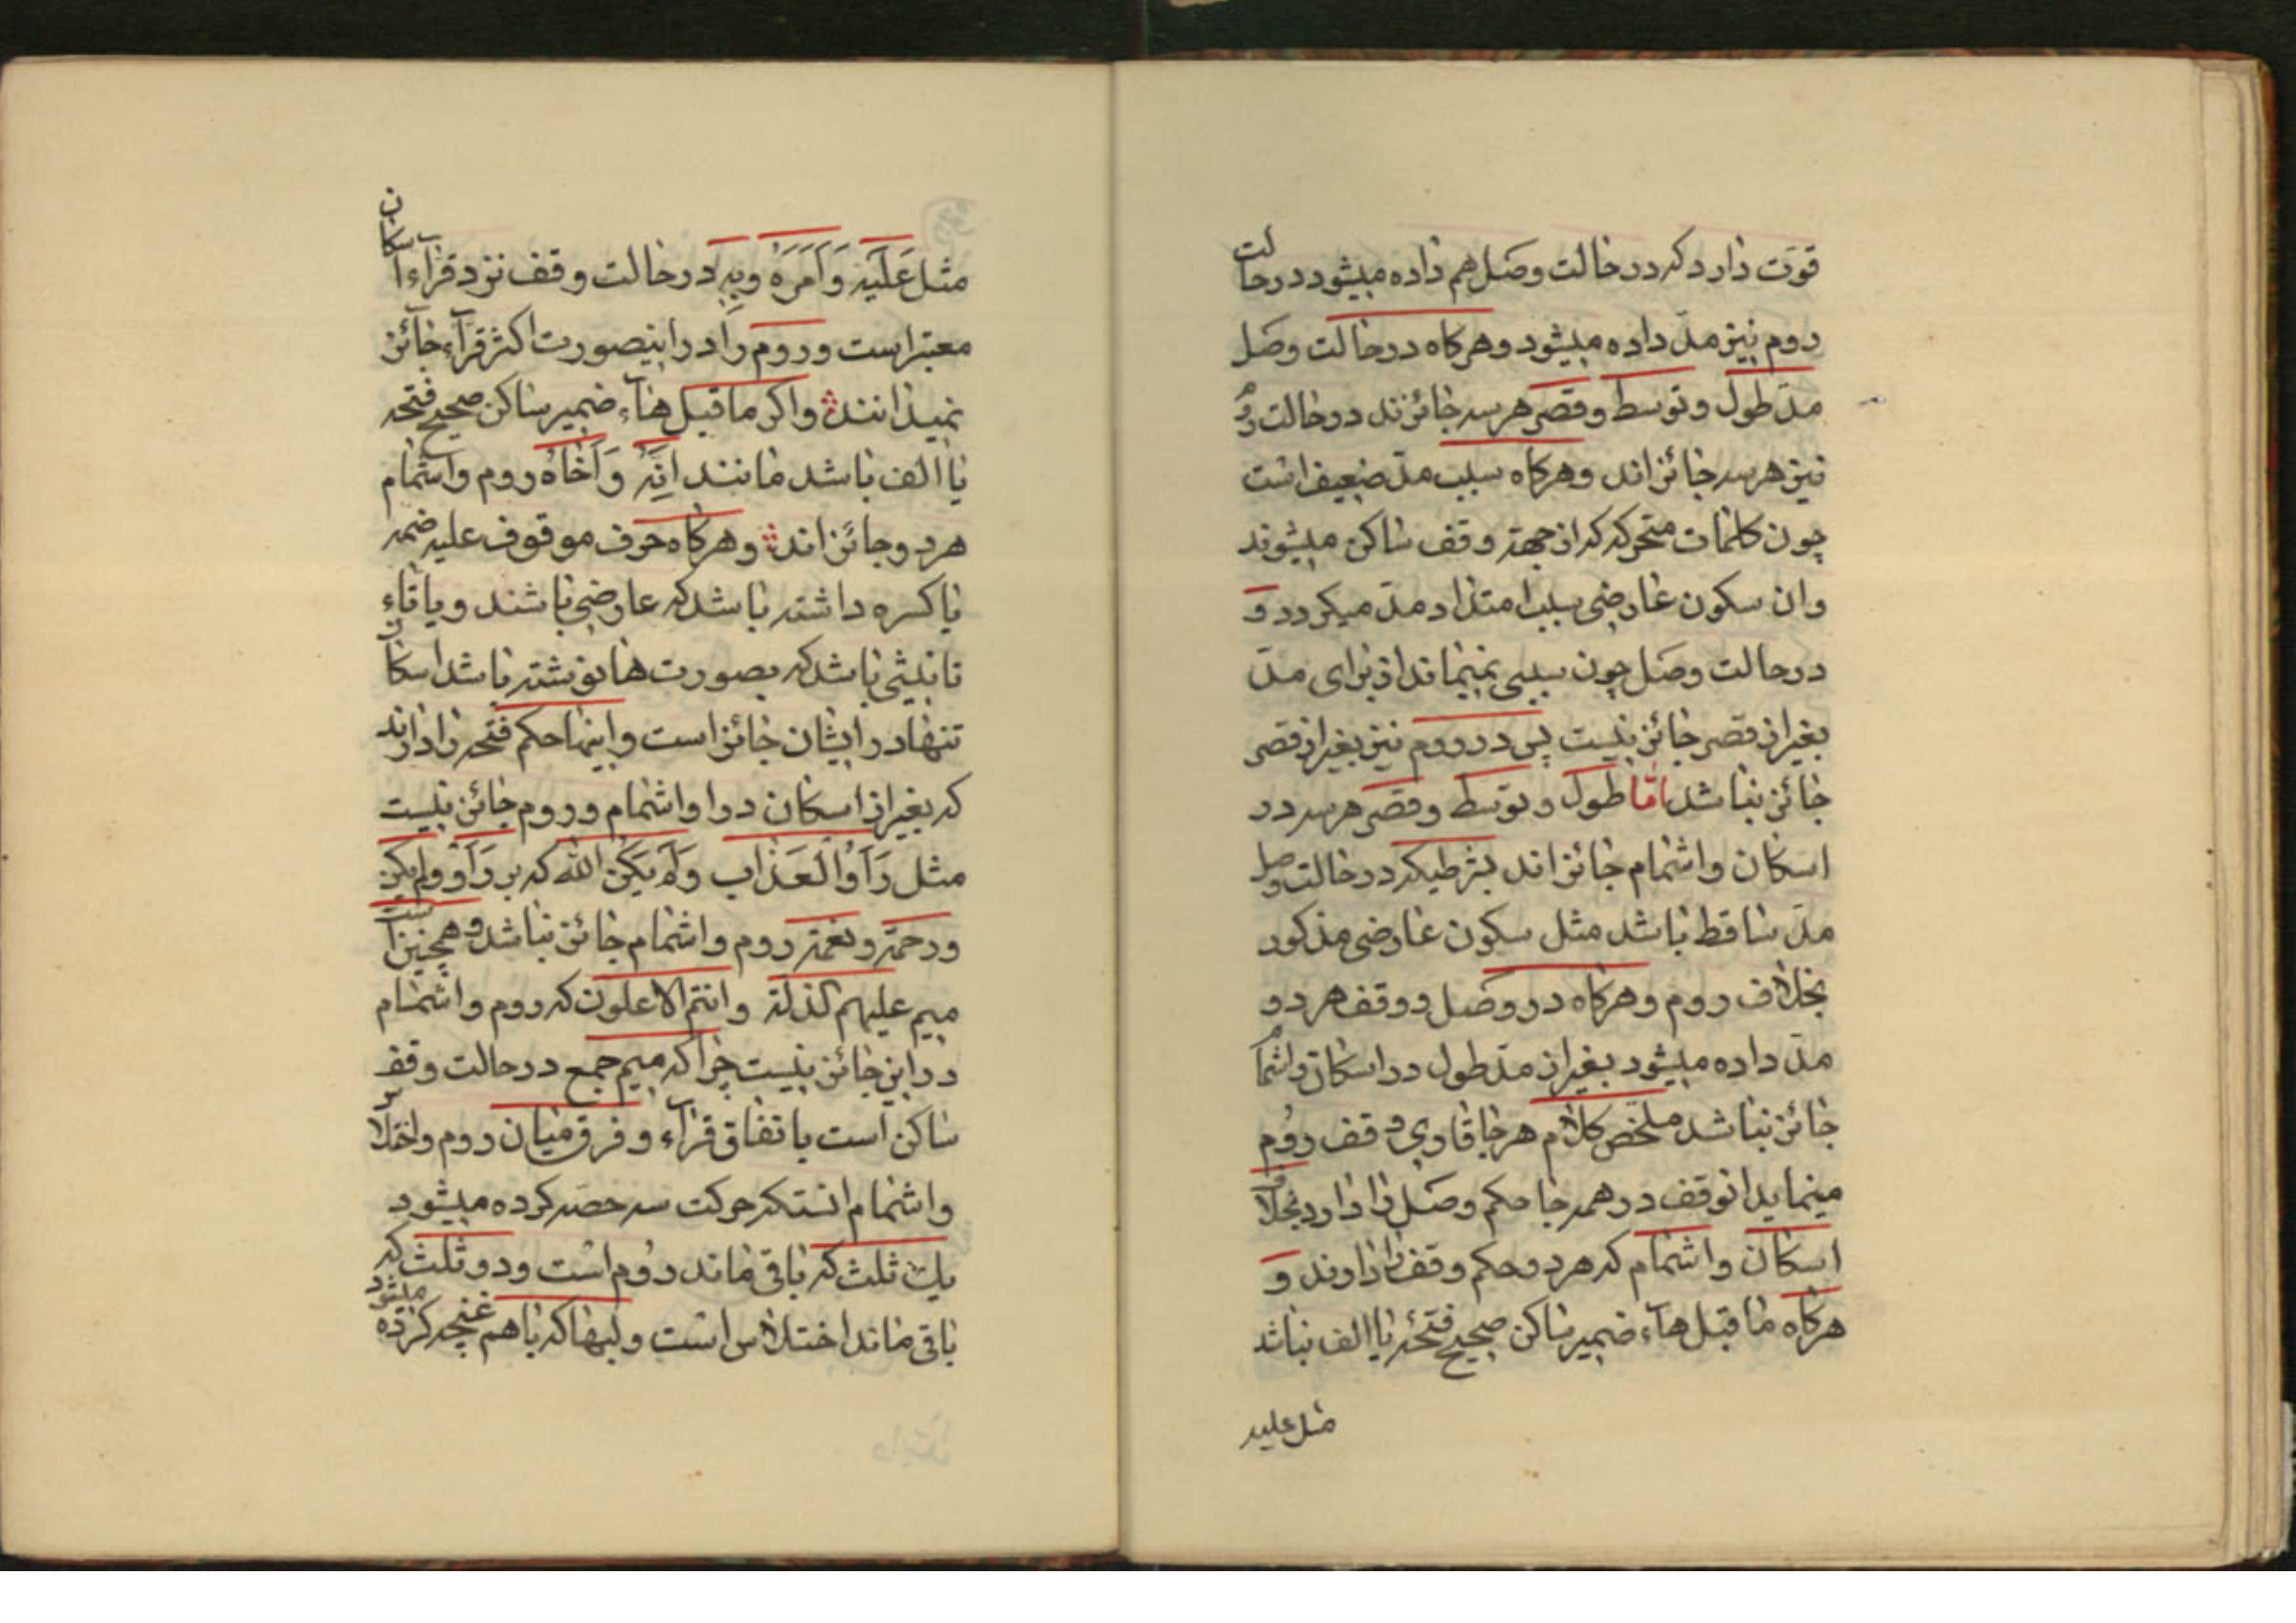 قوّت دارد که در حالت وصل هم داده میشود در حالت
روم نیز مدّ داده میشود و هرکاه در حالت وصل
مدّ طول و توسط و قصر هر سه جائزند در حالت روم
نیز هر سه جائز اند و هرکاه سبب مدّ ضعیف است
چون کلمات متحرکه که از جهتہ وقف ساکن میشوند
وان سکون عارضی سبب امتداد مدّ میکردد و
در حالت وصل چون سببی نمیماند از برای مدّ
بغیر از قصر جائز نیست پس در روم نیز بغیر از قصر
جائز نباشد امّا طول و توسط و قصر هر سه در
اسکان و اشمام جائز اند بشرطیکه در حالت وصل
مدّ ساقط باشد مثل سکون عارضی مذکور
بخلاف روم و هرکاه در وصل و وقف هر دو
مدّ داده میشود بغیر از مدّ طول در اسکان و اشمام
جائز نباشد ملخّص کلام هر جا قاری وقف روم
مینماید انوقف در همه جا حکم وصل را دارد بخلاف
اسکان و اشمام که هر دو حکم وقف را دارند و
هرکاه ما قبل هاء ضمیر ساکن صحیح فتحہ یا الف نباشد
مثل علیه
مثل عَلَیه وَاَمَرَهُ وبِهِ در حالت وقف نزد قرّاء اسکان
معتبر است و روم را در اینصورت اکثر قرآء جائز
نمیدانند و اکر ما قبل هاء ضمیر ساکن صحیح فتحه
یا الف باشد مانند اِنَّهُ وَاَخَاهُ روم و اشمام
هر دو جائز اند و هرکاه حرف موقوف علیه ضمه
یا کسره داشته باشد که عارضی باشند و یا تاءِ
تانیثی باشد که بصورت ها نوشته باشد اسکان
تنها در ایشان جائز است و اینها حکم فتحه را دارند
که بغیر از اسکان در او اشمام و روم جائز نیست
مثل رَاَوُا الْعَذاب وَلَم یَکُنِ اللّه که بر رَاَوُ و لم یکن
و رحمة و نعمة روم و اشمام جائز نباشد و همچنین است
میم علیهم الذلة و انتم الاعلون که روم و اشمام
در این جائز نیست چرا که میم جمع در حالت وقف
ساکن است باتفاق قرآء و فرق میان روم و اختلاس
و اشمام انستکه حرکت سه حصه کرده میشود
یک ثلث که باقی ماند روم است و دو ثلث که
باقی ماند اختلاس است و لبها که باهم غنچه کرده میشود